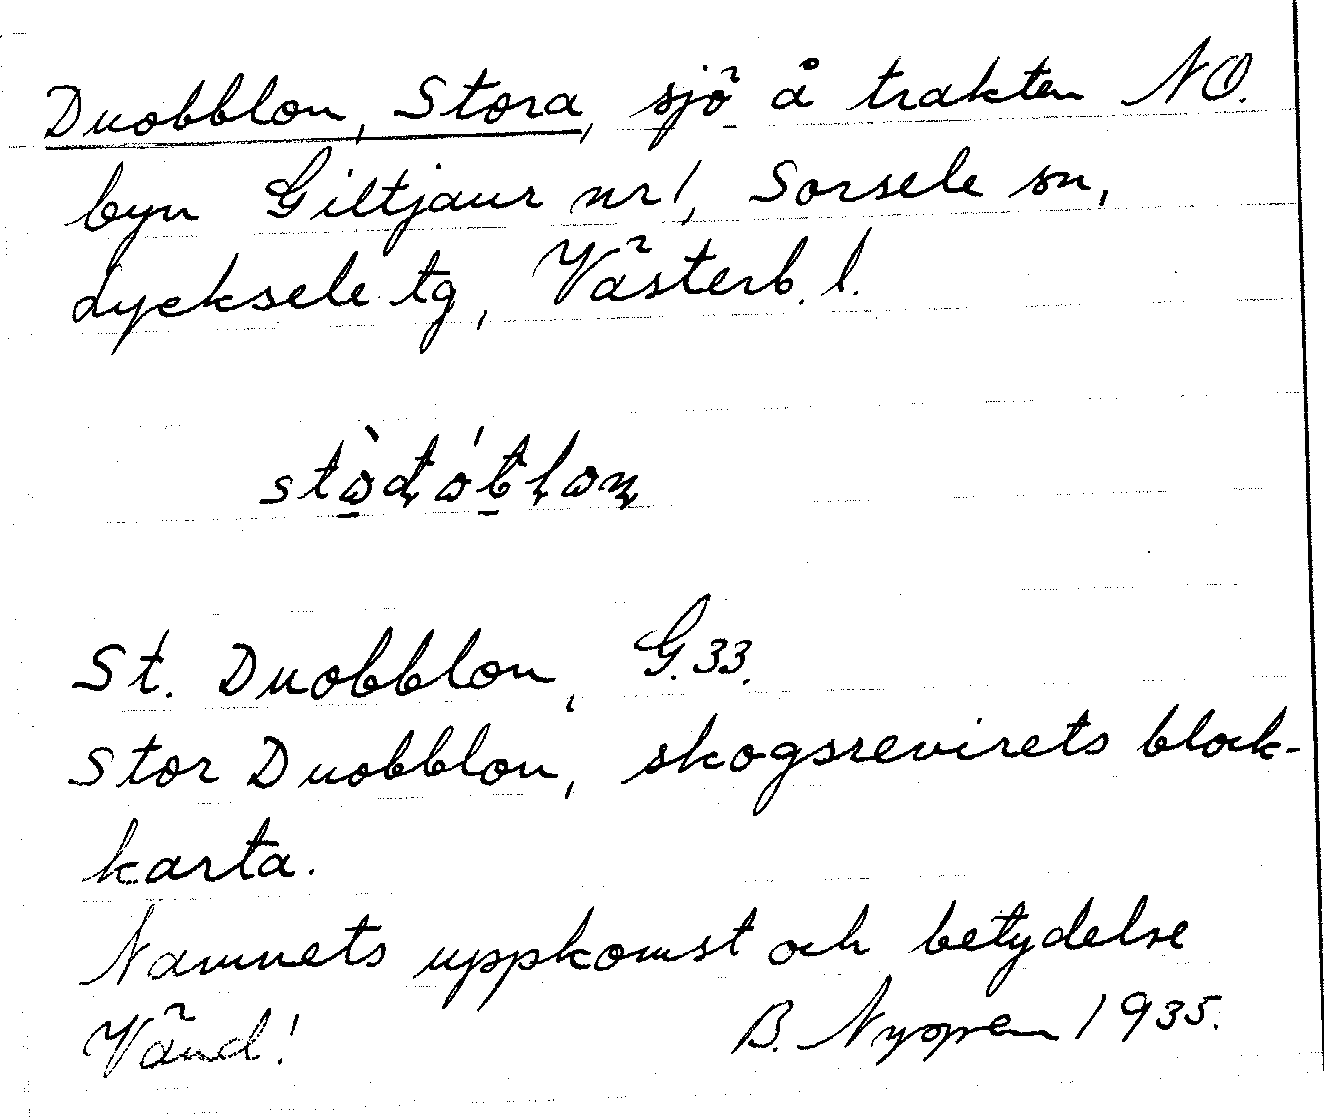 Duobblon, Stora, sjö å trakten NO.
byn Giltjaur nr 1, Sorsele sn,
Lycksele tg, Västerb. l.
St. Duobblon, G.33.
Stor Duobblon, skogsrevirets block-
karta.
Namnets uppkomst och betydelse
Vänd! B. Nyopen 1935.